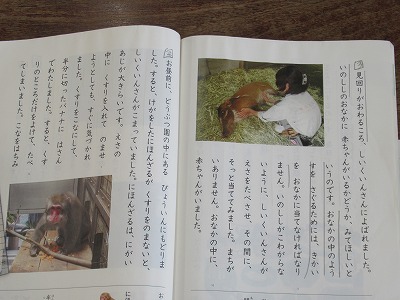 見回りがおわるころ、しいくいんさんによばれました。
いのししのおなかに 赤ちゃんがいるかどうか、みてほしいと
いうのです。おなかの中のよう
すを さぐるためには、きかい
を おなかに当てなければなり
ません。いのししがこわがらな
いように、しいくいんさんが
えさをたべさせ、その間に、
そっと当ててみました。まちが
いありません。おなかの中に、
赤ちゃんがいました。
お昼前に、どうぶつ園の中にある びょういんにもどりま
した。すると、けがをしたにほんざるが くすりをのまないと、
しいくいんさんがこまっていました。にほんざるは、にがい
あじが大きらいです。えさの
中に くすりを入れて のませ
ようとしても、すぐに気づかれ
ました。くすりをこなにして、
半分に切ったバナナに はさん
でわたしました。すると、くす
りのところだけをよけて、たべ
てしまいました。こなをはちみ